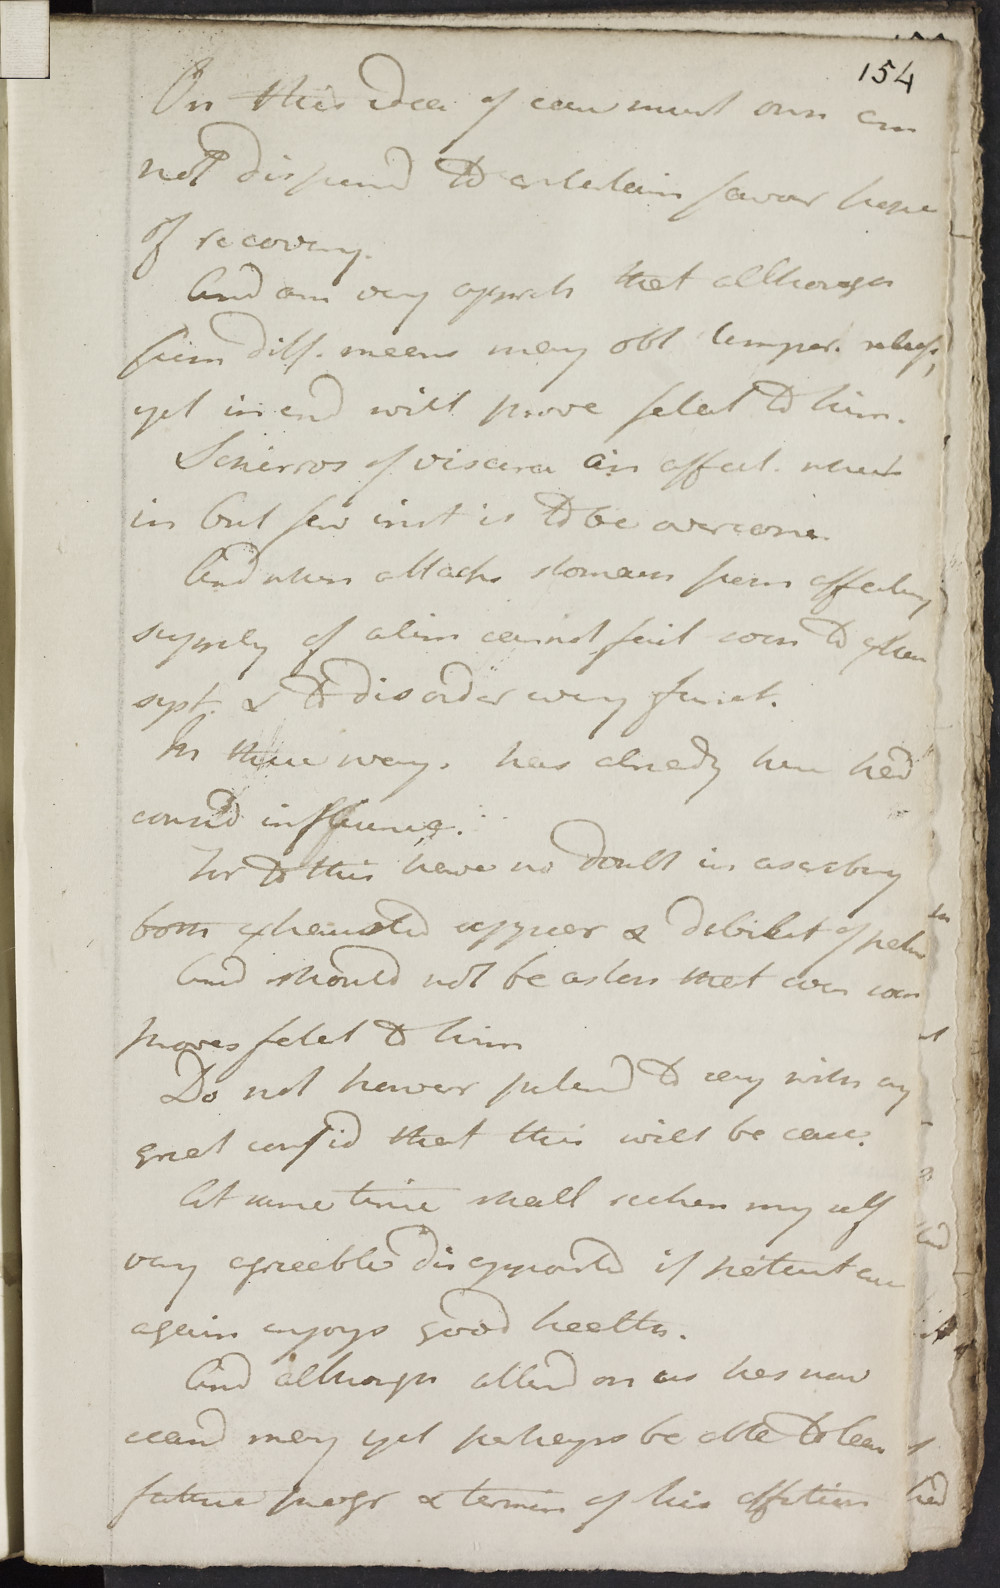 154
On this idea of case must own am
not dispund to entertain favour hope
of recovery.
And am very appreh that although
from diff. means may obt temper. relief,
yet in end will prove fatal to him.
Schirros of viscera an affect. which
in but few inst is to be overcome.
And when attacks stomach from affecting
supply of alim cannot fail soon to exhau
syst. & to disorder every funct.
In these ways. has already here had
consid influence.
For to this have no doubt in ascribing
both exhausted appear & debilit of patien
And should not be aston that even soon
proves fatal to him
Do not however pretend to say with any
great confid that this will be case.
At same time shall reckon my self
very agreeble disappointd if patient ever
again enjoys good health.
And although attend on us has now
ceasd may yet perhaps be able to learn
future progr & termin of his affection